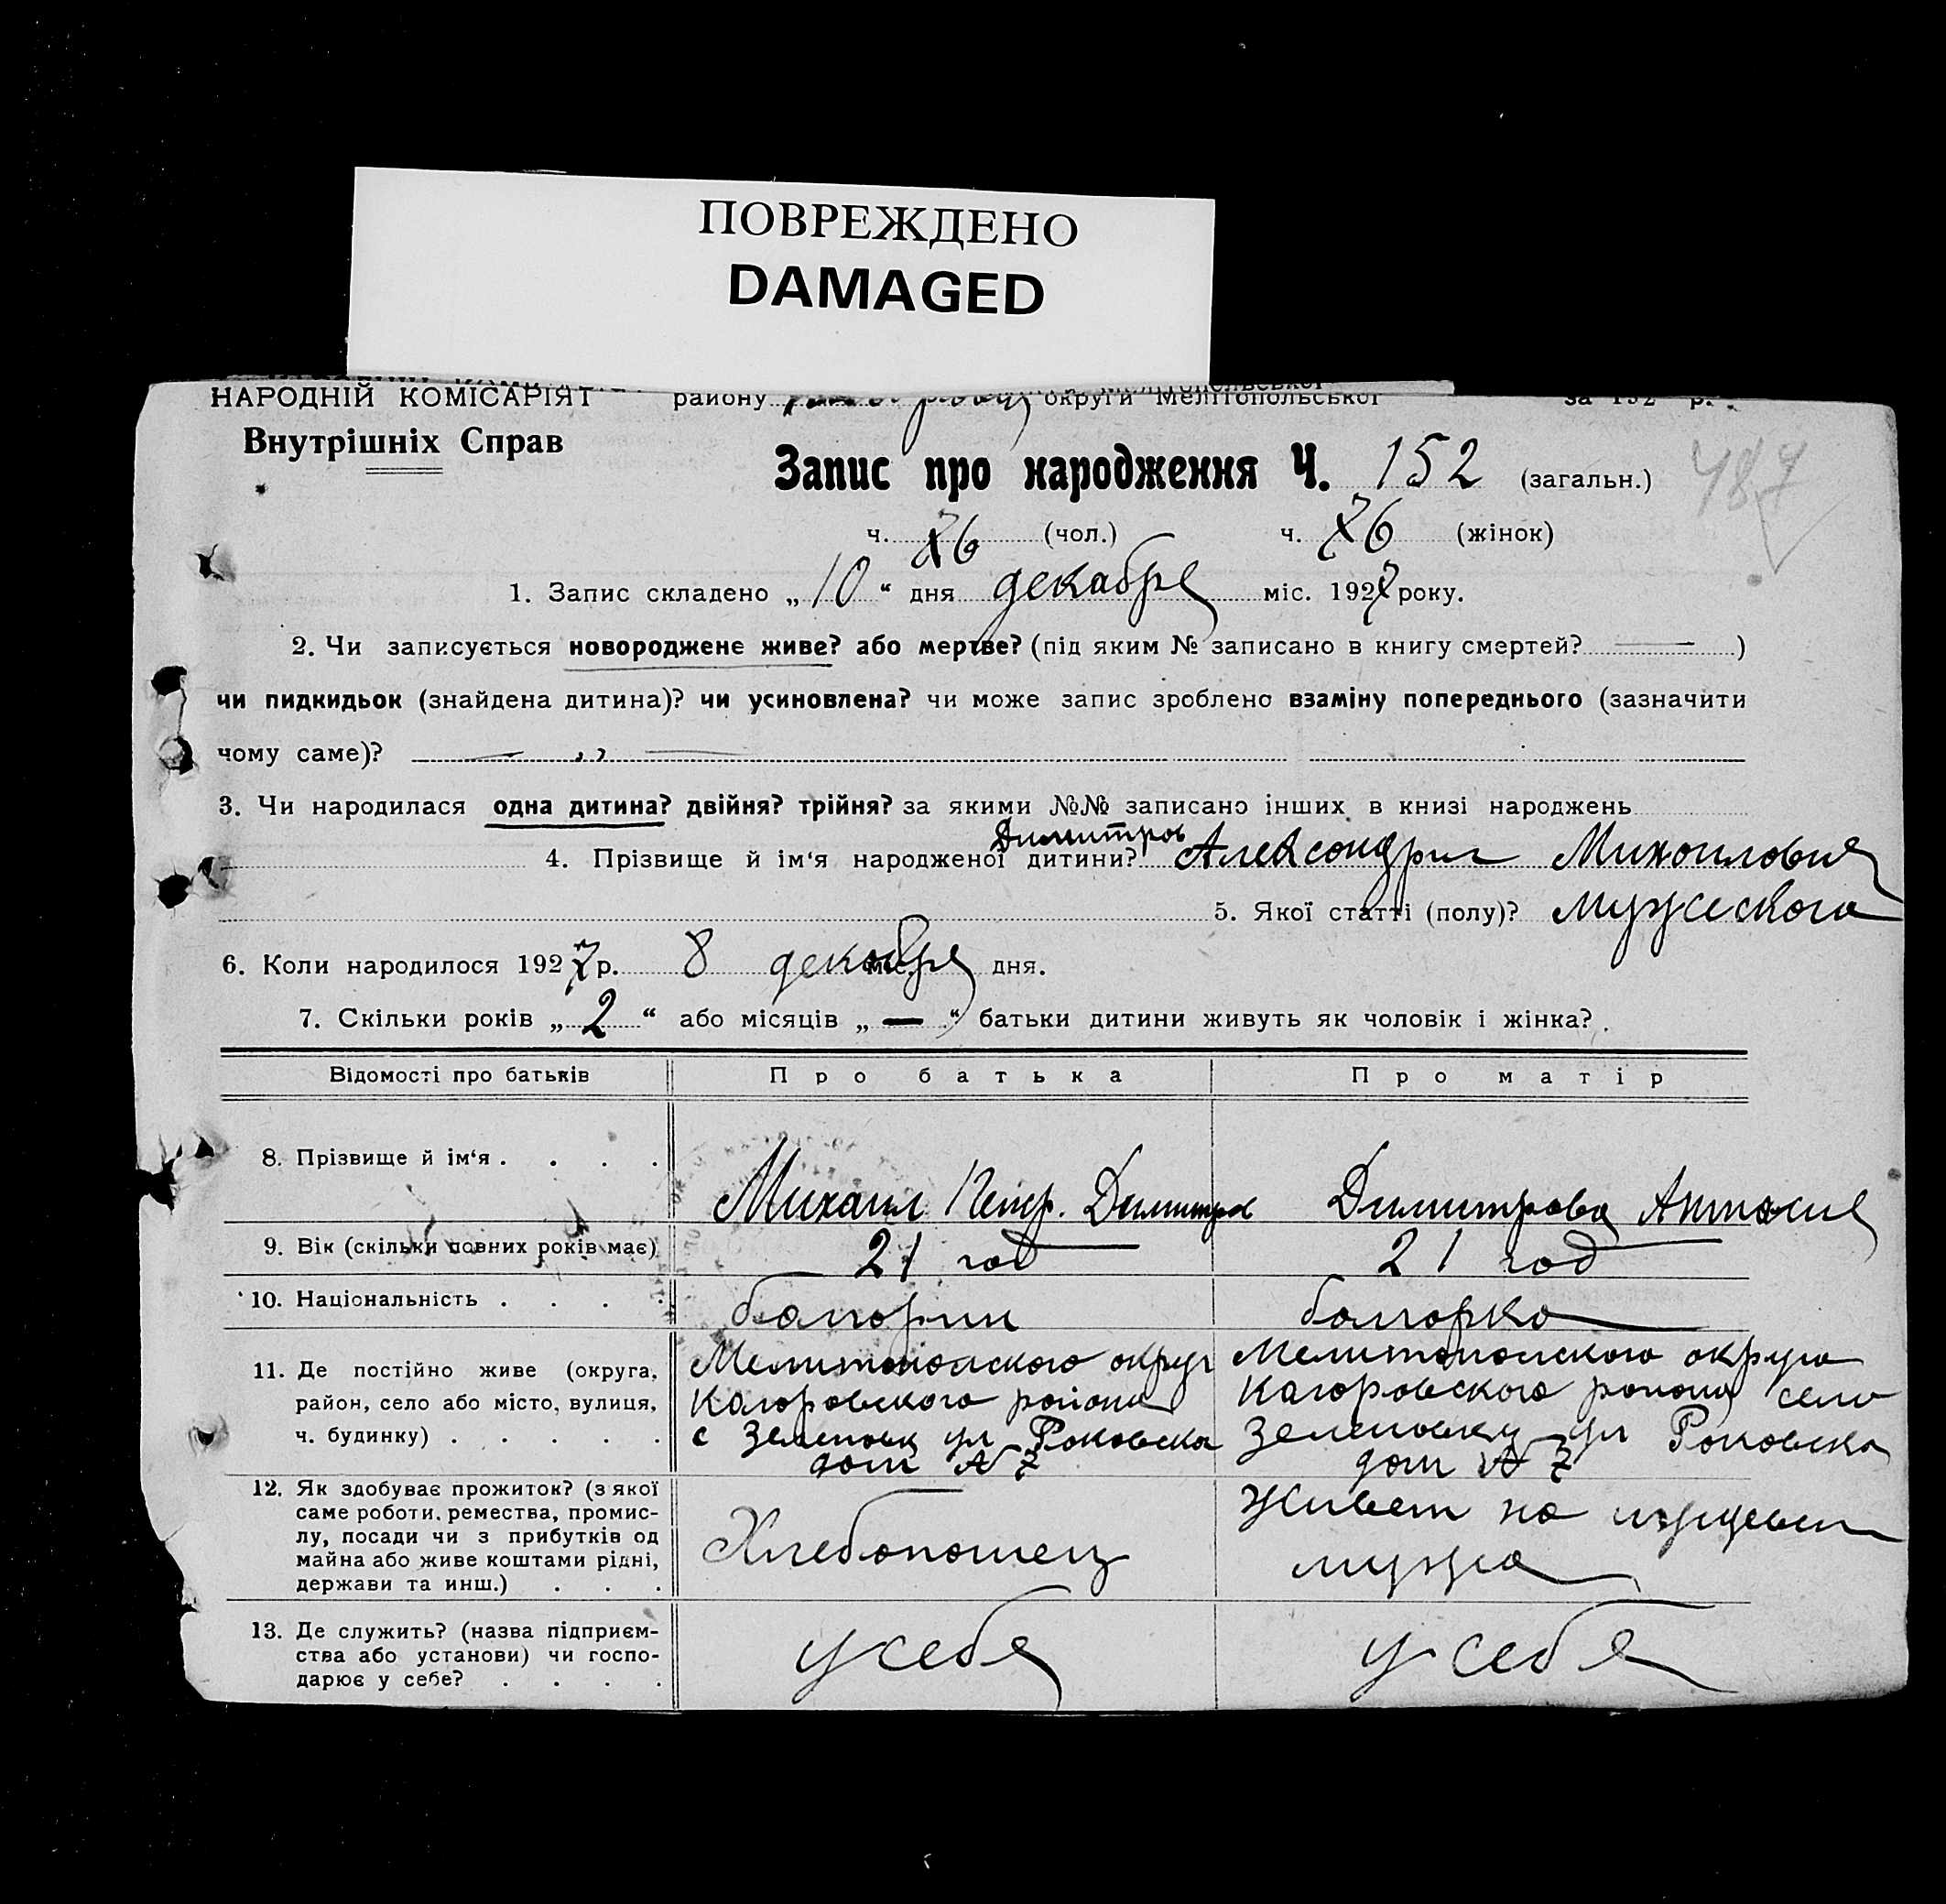 ПОВРЕЖДЕНО
DAMAGED
НАРОДНІЙ КОМІСАРІЯТ району округи Мелітопольської за 192 р.
Внутрішніх Справ
Запис про народження Ч. 152 (загальн.) 487
ч. 76 (чол.) ч. 76 (жінок)
1. Запис складено „10“ дня декабря міс. 1927 року.
2. Чи записується новороджене живе? або мертве? (під яким № записано в книгу смертей? — )
чи пидкидьок (знайдена дитина)? чи усиновлена? чи може запис зроблено взаміну попереднього (зазначити
чому саме)? — „ —
3. Чи народилася одна дитина? двійня? трійня? за якими №№ записано інших в книзі народжень
Димитров
4. Прізвище й ім‘я народженої дитини? Александри Михоиловия
5. Якої статті (полу)? мужеского
6. Коли народилося 1927 р. 8 декабря міс. дня.
7. Скільки років „2“ або місяців „—“ батьки дитини живуть як чоловік і жінка?
Відомості про батьків Про батька Про матір
8. Прізвище й ім‘я . . . . Михаил Петр. Димитров Димитрова
9. Вік (скільки повних років має) 21 год 21 год
10. Національність . . . . болгорин болгорко
11. Де постійно живе (округа, Мелитополского округ Мелитополского округо
район, село або місто, вулиця, района района село
ч. будинку) . . . . . с ул ул
дом № 7 дом № 7
12. Як здобуває прожиток? (з якої
саме роботи, ремества, промис-
лу, посади чи з прибутків од
майна або живе коштами рідні,
держави та инш.) . . . Хлебопошец Живет но мужа
13. Де служить? (назва підприєм-
ства або установи) чи госпо-
дарює у себе? . . . . у себя у себя